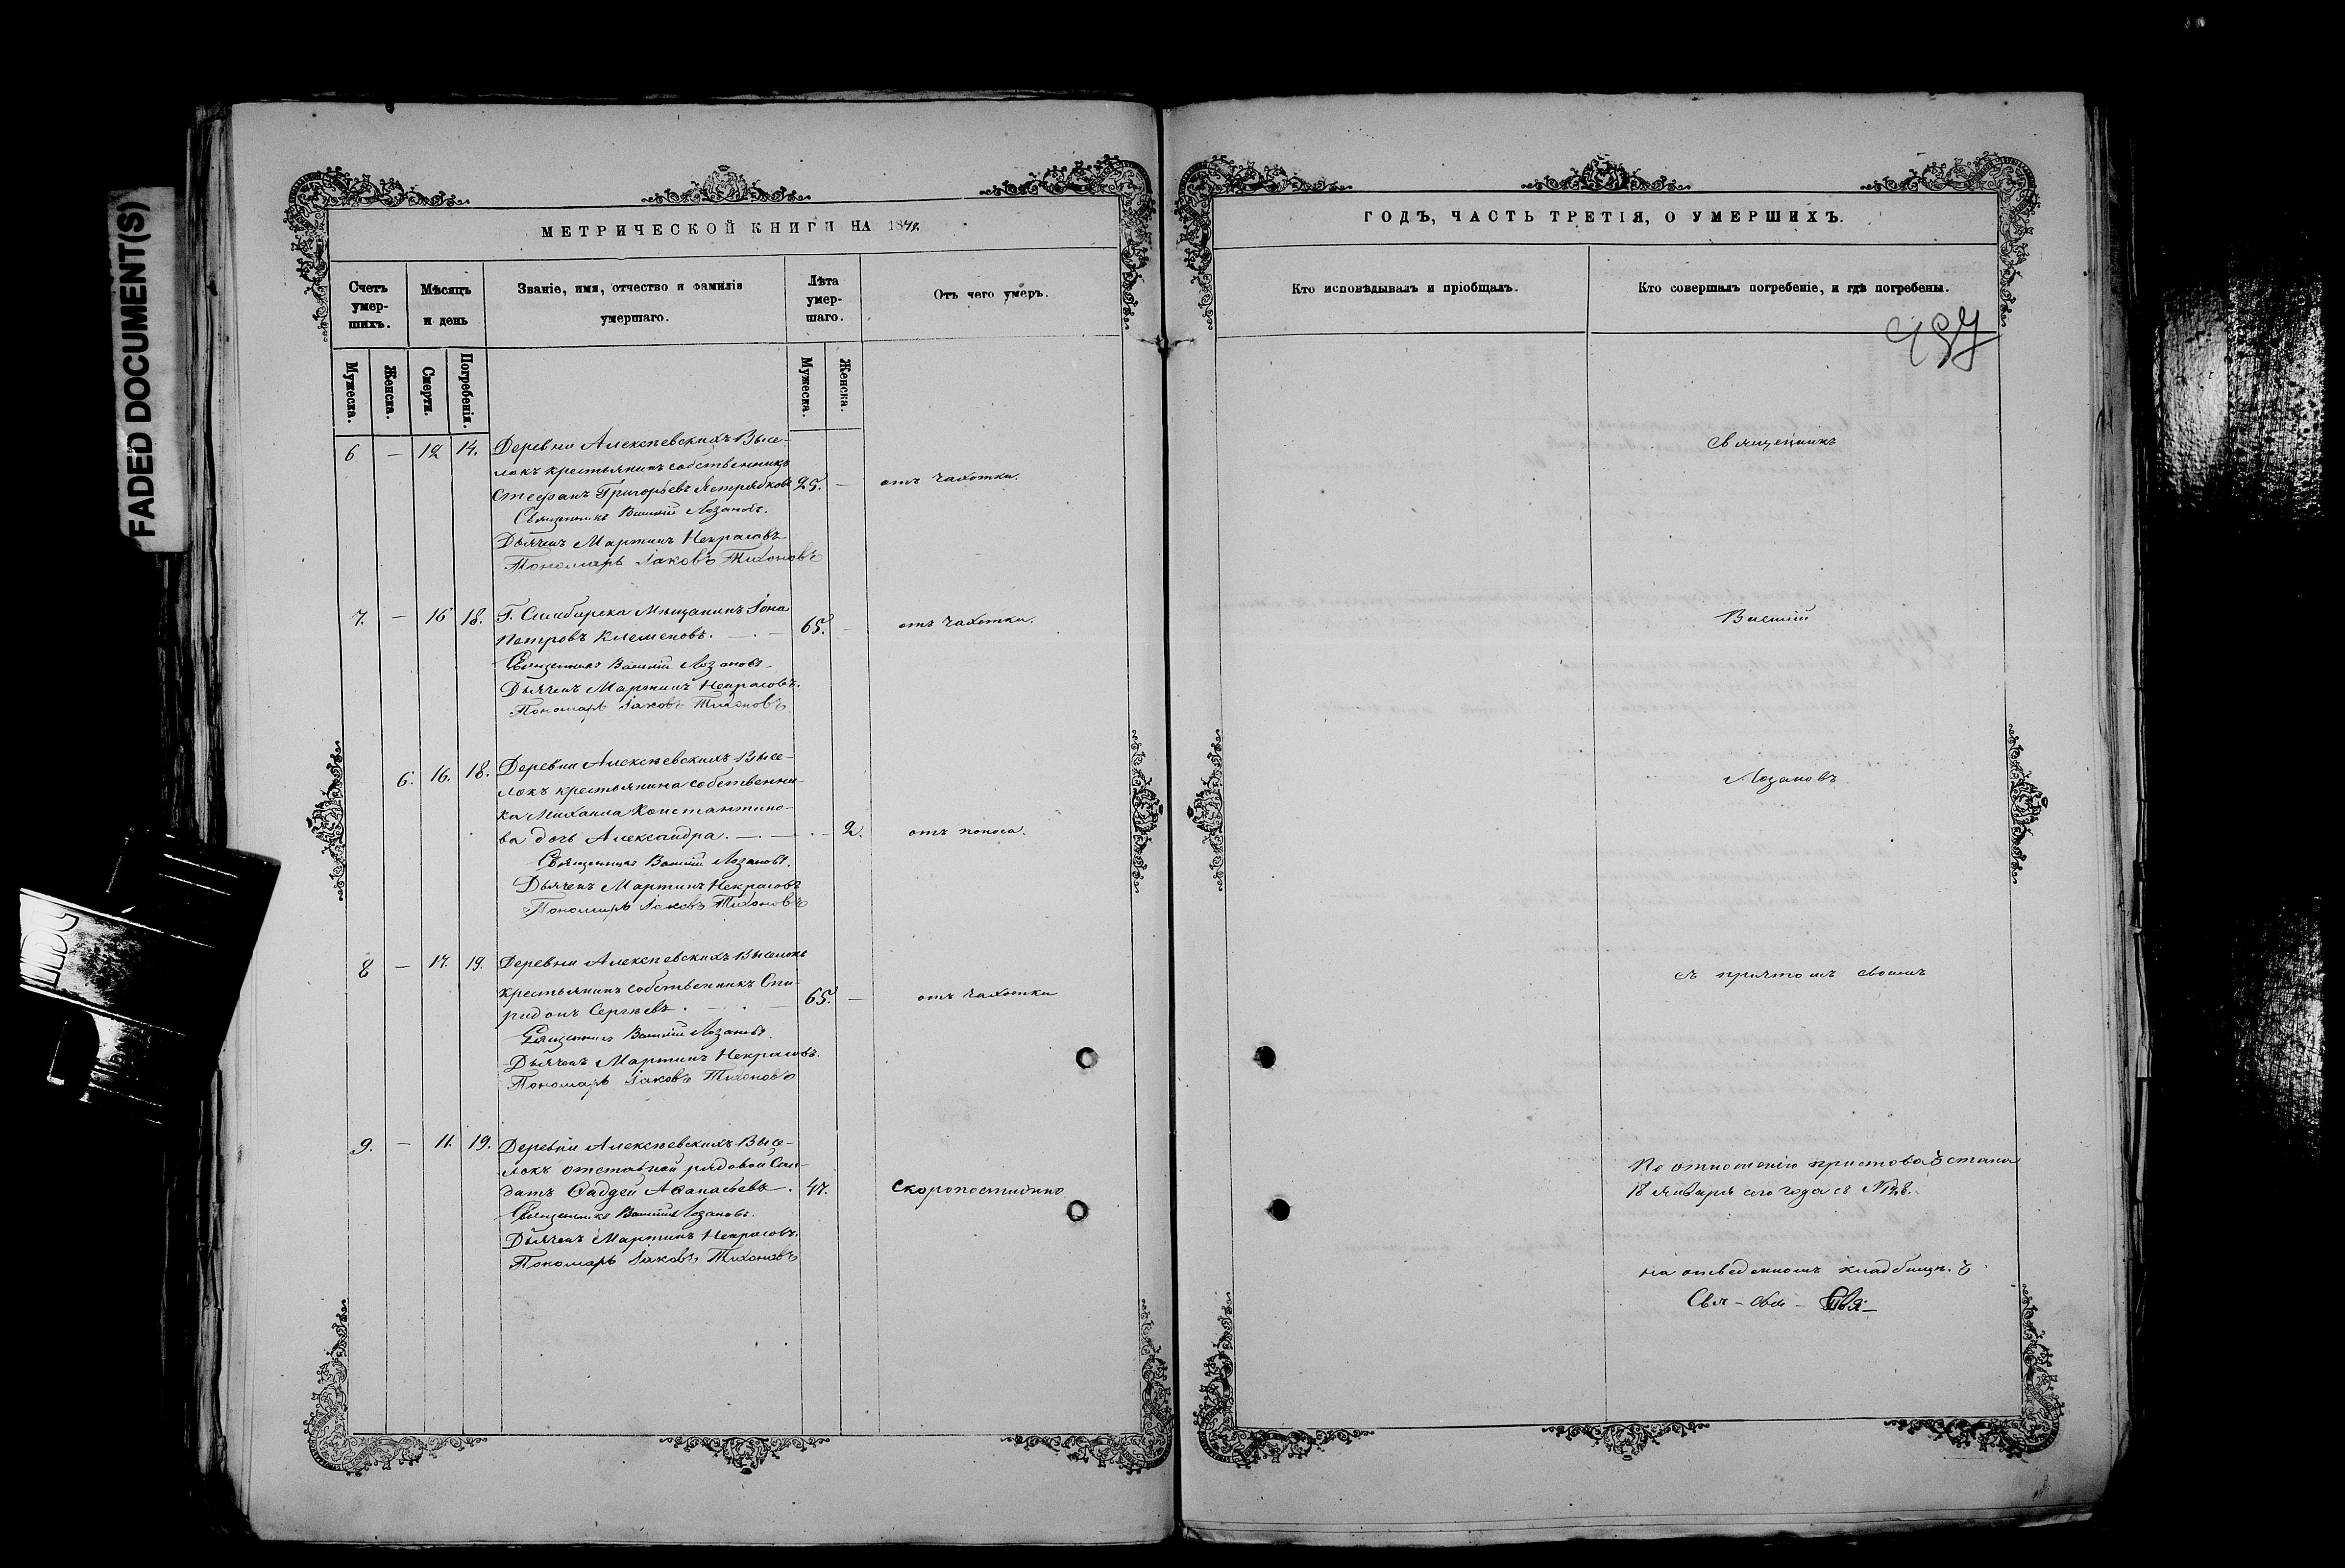 FADED DOCUMENT(S)
МЕТРИЧЕСКОЙ КНИГИ НА 18
Счетъ умер-шихъ.
Мѣсяцъ и день
Званіе, имя, отчество и фамилія умершаго.
Лѣта умер-шаго.
Отъ чего умеръ.
Мужеска.
Женска.
Смерти.
Погребенія.
Мужеска.
Женска.
6 — 12 14. Деревни Алексѣевскихъ Высе-
локъ крестьянинъ собственникъ
Стефанъ Григорьевъ Ястребковъ 25. — отъ чахотки.
Священникъ Василій Лозановъ.
Дьячекъ Мартинъ Некрасовъ
Пономарь Іаковъ Тихоновъ
7. — 16 18. Г. Симбирска Мѣщанинъ Іона
Петровъ Клеменовъ. — . — 65. — отъ чахотки.
Священникъ Василій Лозановъ.
Дьячекъ Мартинъ Некрасовъ.
Пономарь Іаковъ Тихоновъ
6. 16. 18. Деревни Алексѣевскихъ Высе-
локъ крестьянина собственни-
ка Михаила Константино-
ва дочь Александра. — . — . — 2. отъ поноса.
Священникъ Василій Лозановъ.
Дьячекъ Мартинъ Некрасовъ
Пономарь Іаковъ Тихоновъ
8 — 17. 19. Деревни Алексѣевскихъ Выселокъ
крестьянинъ собственникъ Спи-
ридонъ Сергѣевъ . — . — 65. — отъ чахотки
Священникъ Василій Лозановъ.
Дьячекъ Мартинъ Некрасовъ.
Пономарь Іаковъ Тихоновъ
9. — 11. 19. Деревни Алексѣевскихъ Высе-
локъ отставной рядовой Сол-
датъ Фаддей Афанасьевъ . 47. Скоропостижно
Священникъ Василій Лозановъ.
Дьячекъ Мартинъ Некрасовъ.
Пономарь Іаковъ Тихоновъ
ГОДЪ, ЧАСТЬ ТРЕТІЯ, О УМЕРШИХЪ.
Кто исповѣдывалъ и пріобщалъ.
Кто совершалъ погребеніе, и гдѣ погребены.
Священникъ
Василій
Лозановъ
съ причтомъ своимъ
По отношенію пристава стана
18 января сего года за №
на отведенномъ кладбищѣ.